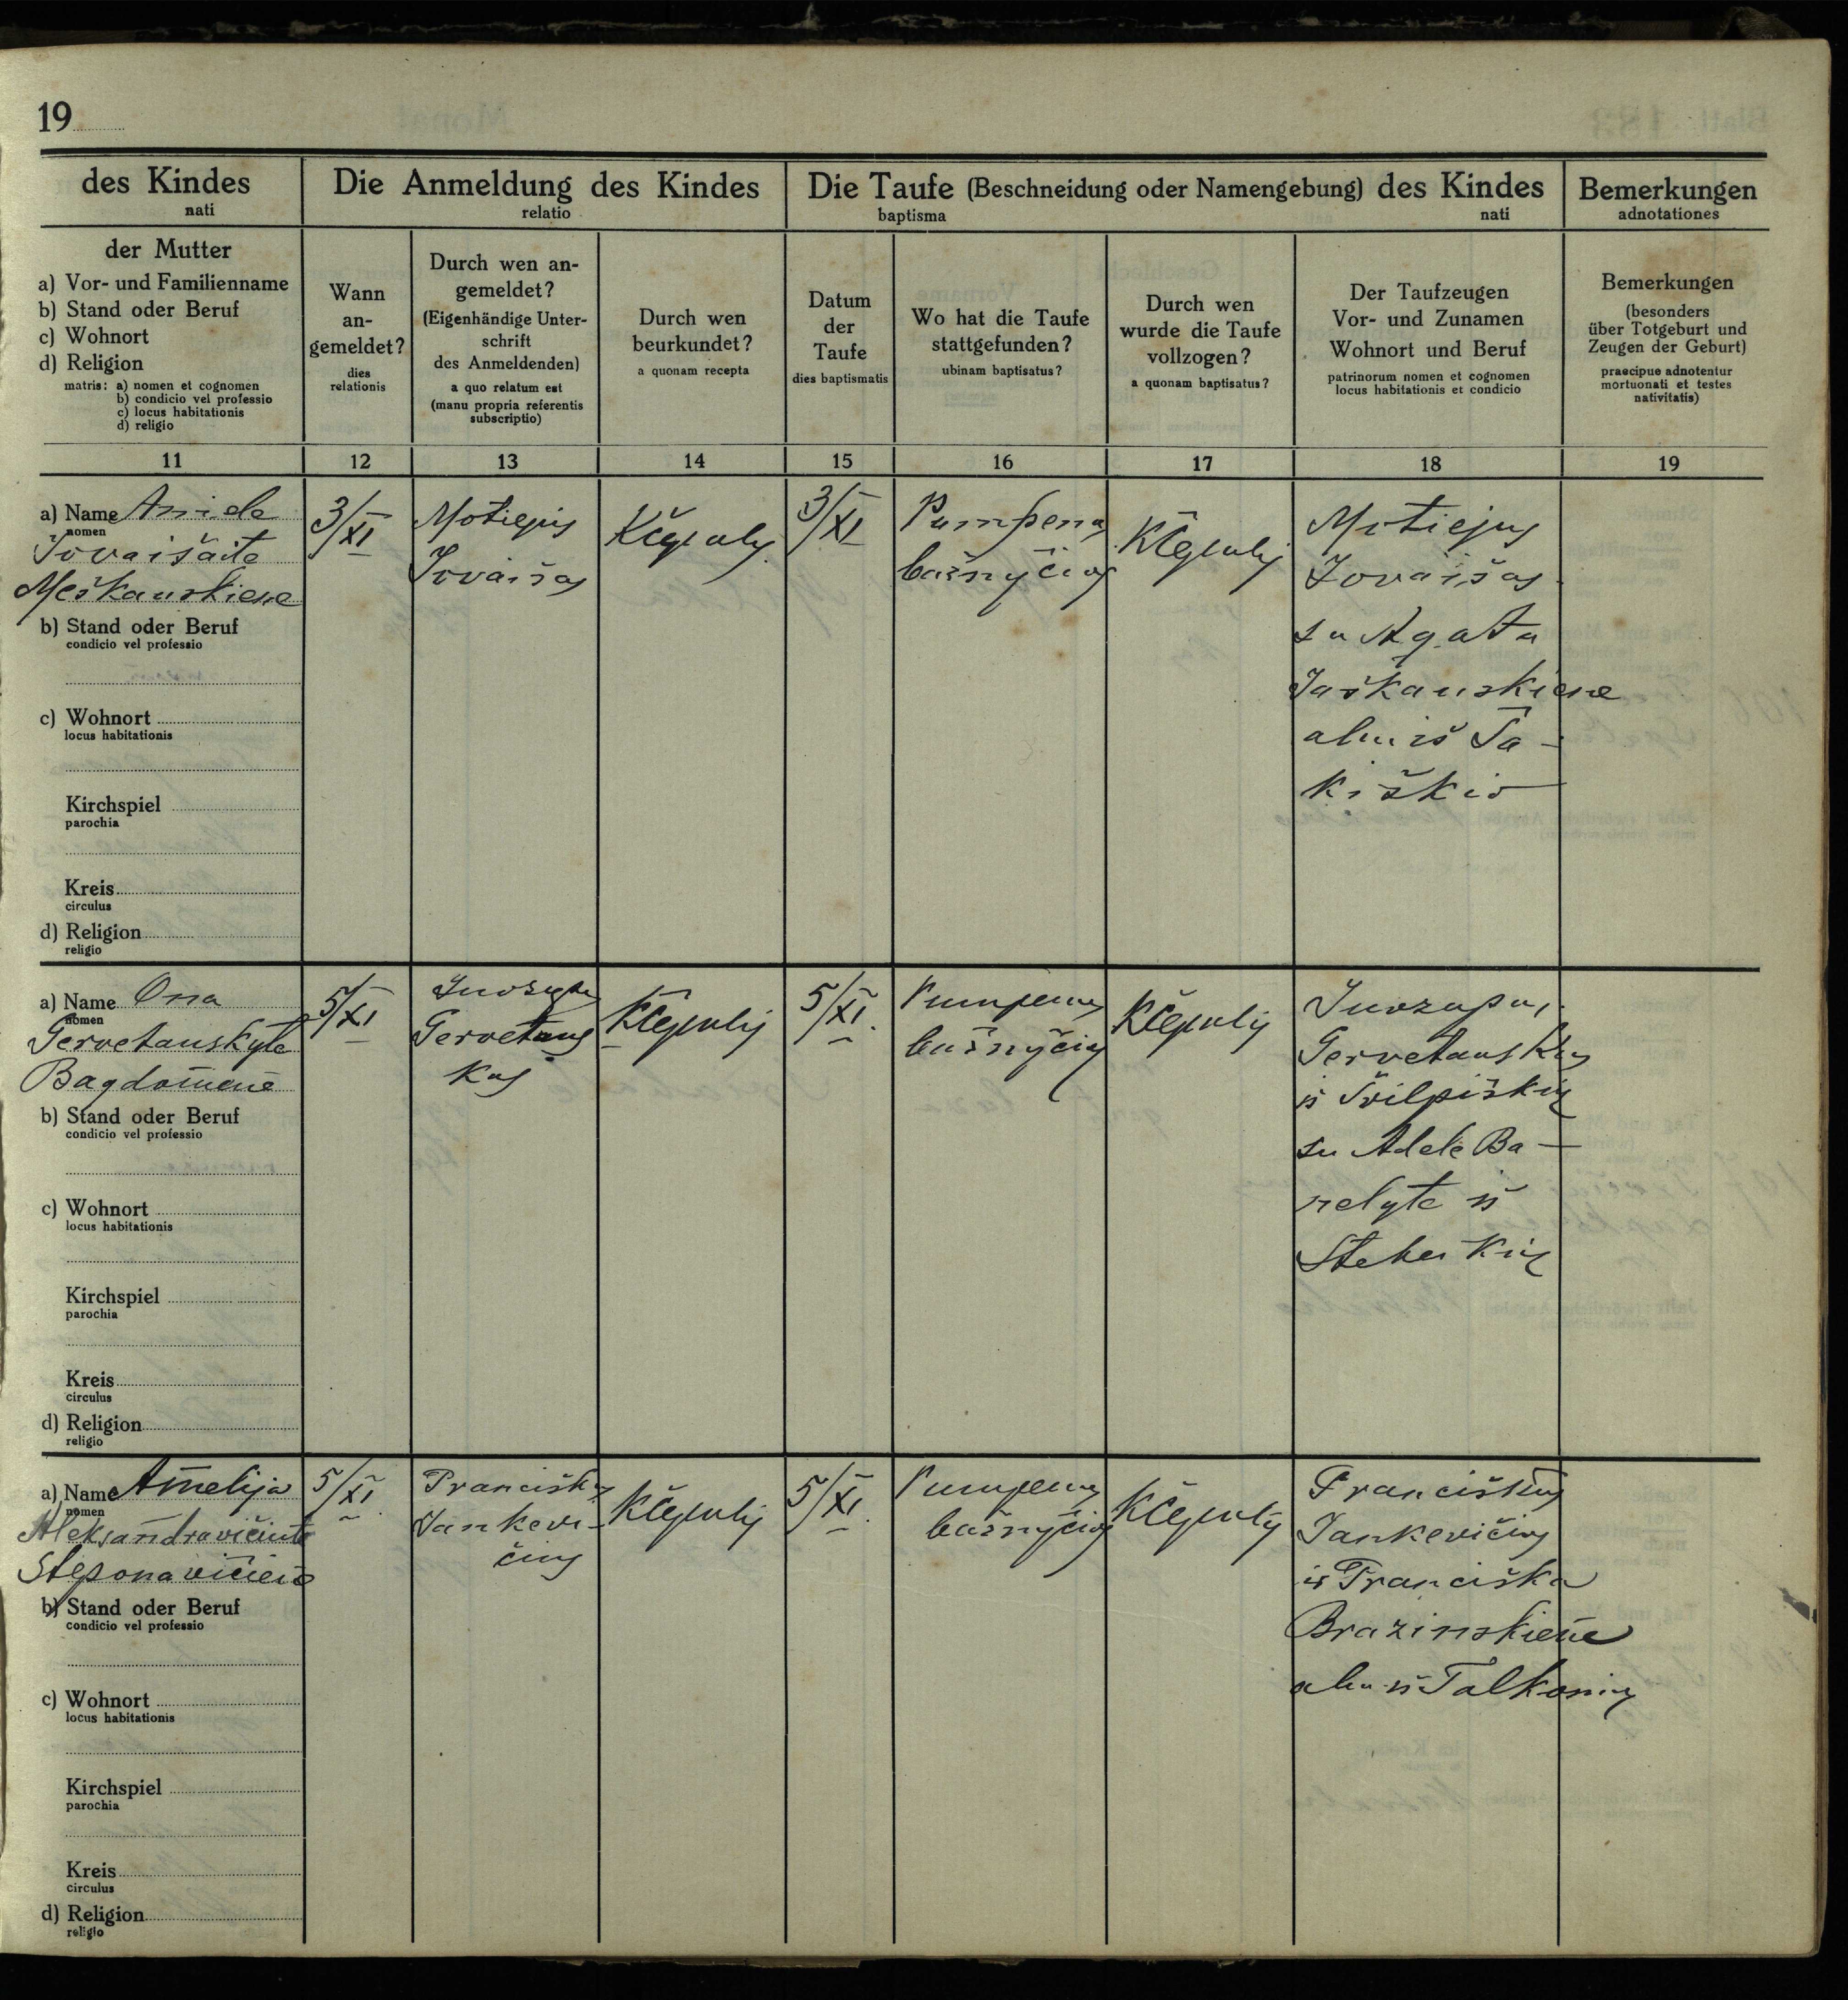 19
des Kindes
nati
Die Anmeldung des Kindes
relatio
Die Taufe (Beschneidung oder Namengebung) des Kindes
baptisma
nati
Bemerkungen
adnotationes
der Mutter
a) Vor- und Familienname
b) Stand oder Beruf
c) Wohnort
d) Religion
matris: a) nomen et cognomen
b) condicio vel professio
c) locus habitationis
d) religio
Wann
an-
gemeldet?
dies
relationis
Durch wen an-
gemeldet?
(Eigenhändige Unter-
schrift
des Anmeldenden)
a quo relatum est
(manu propria referentis
subscriptio)
Durch wen
beurkundet?
a quonam recepta
Datum
der
Taufe
dies baptismatis
Wo hat die Taufe
stattgefunden?
ubinam baptisatus?
Durch wen
wurde die Taufe
vollzogen?
a quonam baptisatus?
Der Taufzeugen
Vor- und Zunamen
Wohnort und Beruf
patrinorum nomen et cognomen
locus habitationis et condicio
Bemerkungen
(besonders
über Totgeburt und
Zeugen der Geburt)
praecipue adnotentur
mortuonati et testes
nativitatis)
11
12
13
14
15
16
17
18
19
a) Name Aniele
nomen
Jovaišaite
Meškauskiene
b) Stand oder Beruf
condicio vel professio
c) Wohnort
locus habitationis
Kirchspiel
parochia
Kreis
circulus
d) Religion
religio
3/XI
Motiejus
Jovaišas
3/XI
Pumpenų
bažnyčioj
Motiejus
Jovaišas
su Agota
Jaškauskiene
abu iš Ta-
kiškio
a) Name Ona
nomen
Gervetauskyte
Bagdonienė
b) Stand oder Beruf
condicio vel professio
c) Wohnort
locus habitationis
Kirchspiel
parochia
Kreis
circulus
d) Religion
religio
5/XI
Juozapas
Gervetaus
kas
5/XI.
Pumpenų
bažnyčioj
Juozapas
Gervetauskas
iš Švilpiškių
su Adele Ba-
relyte iš
a) Name Amelija
nomen
Aleksandravičiute
Steponavičienė
b) Stand oder Beruf
condicio vel professio
c) Wohnort
locus habitationis
Kirchspiel
parochia
Kreis
circulus
d) Religion
religio
5/XI.
Pranciškus
Jankevi-
čius
5/XI.
Pumpenų
bažnyčioj
Pranciškus
Jankevičius
ir Pranciška
Brazinskienė
abu iš Talkonių